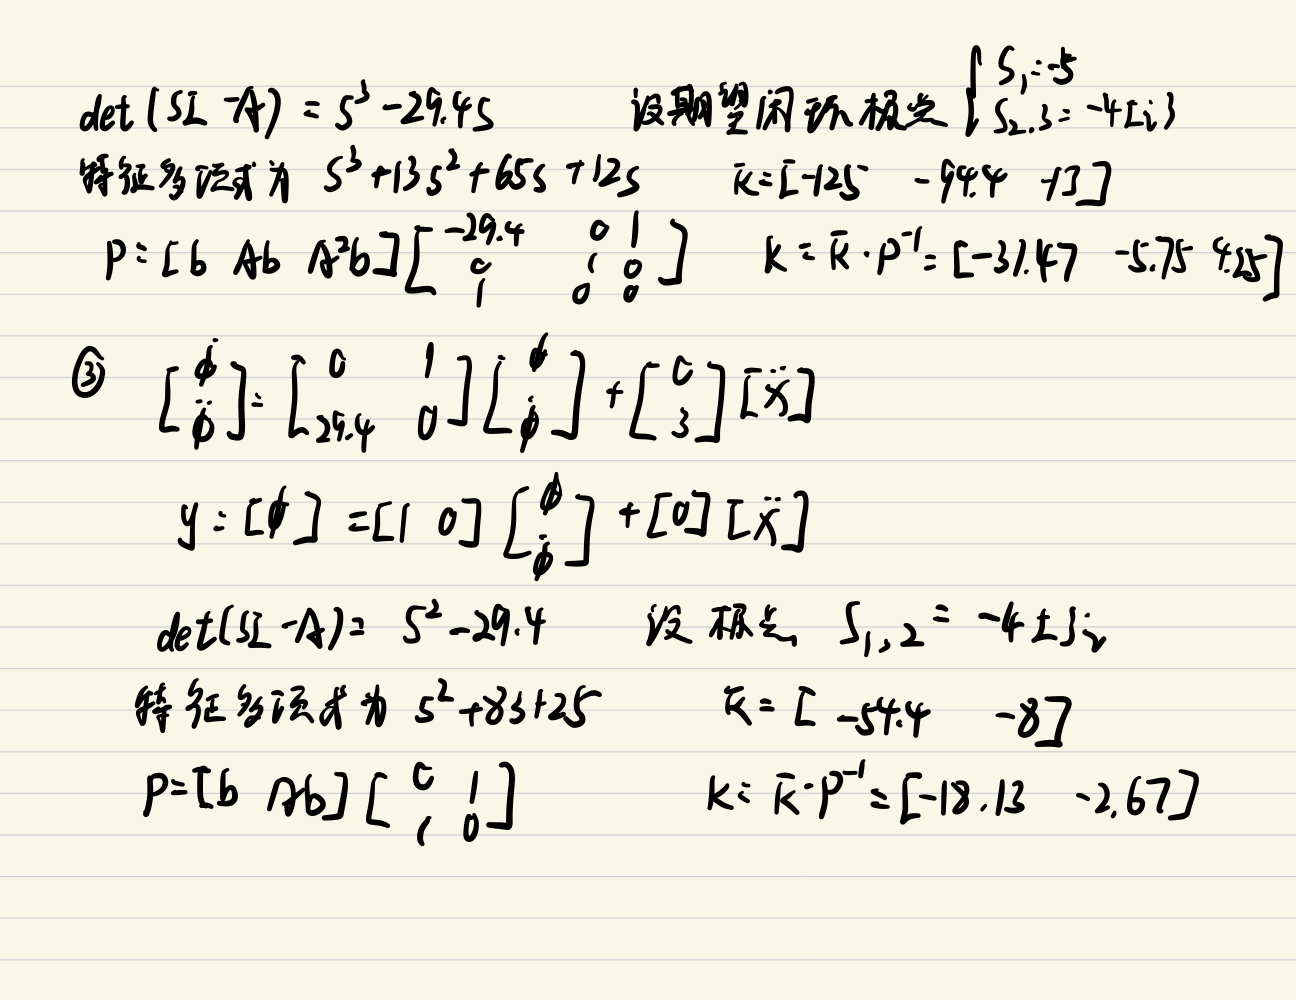 det(SI-A) = S³-29.4S 设期望闭环极点 { S₁=-5
S₂.₃=-4±3i
特征多项式为 S³+13s²+65s+125 k̄=[-125 -94.4 -13]
P=[b Ab A²b][-29.4 0 1; 0 1 0; 1 0 0] k=k̄·P⁻¹=[-31.47 -5.75 4.25]
③ [φ̇; φ̈]=[0 1; 29.4 0][φ; φ̇]+[0; 3][ẍ]
y=[φ]=[1 0][φ; φ̇]+[0][ẍ]
det(SI-A)= S²-29.4 设极点 S₁,₂=-4±3i
特征多项式为 s²+8s+25 k̄=[-54.4 -8]
P=[b Ab][0 1; 1 0] k=k̄·P⁻¹=[-18.13 -2.67]